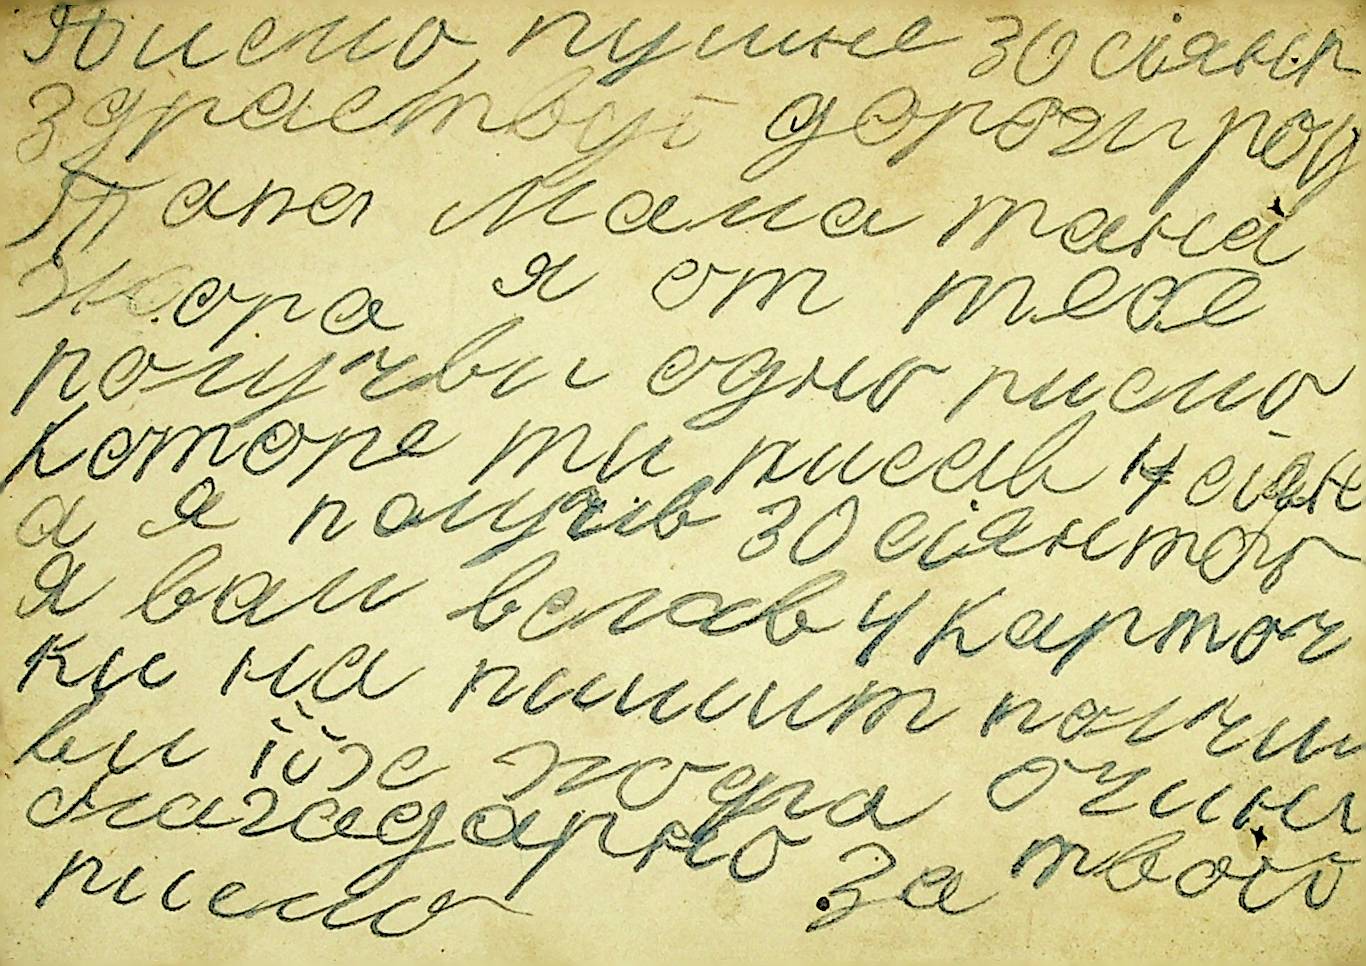 Писмо пушне 30 сіяньт
Здраствуй дороги род
Папа Мама таня
Жора я от тебе
получви одно писмо
которе ти писав 4 сіян
а я получив 30 сіянтбр
я вам велав 4 карточ
ки на пишит получи
ви їйх Жодра очинь
благадарно за твойо
писмо